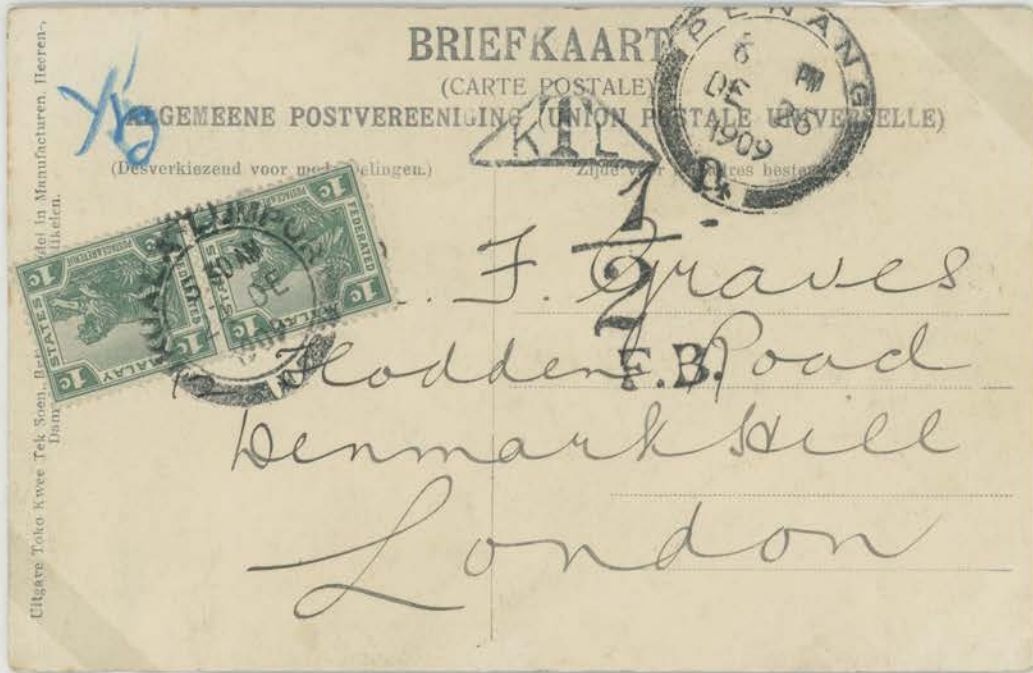 BRIEFKAART
(CARTE POSTALE)
ALGEMEENE POSTVEREENIGING (UNION POSTALE UNIVERSELLE)
(Desverkiezend voor mededeelingen.)
Zijde voor adres
PENANG
6 PM
DE 26
1909
KTL
1
2
F.B.
KUALA LUMPUR
50 AM
DE
FEDERATED
MALAY
STATES
POSTAGE & REVENUE
1c
1c
1c
1c
1c
1c
F. Graves
Flodden Road
Denmark Hill
London
Uitgave Toko Kwee Tek Soen, in Manufacturen, Heeren-,